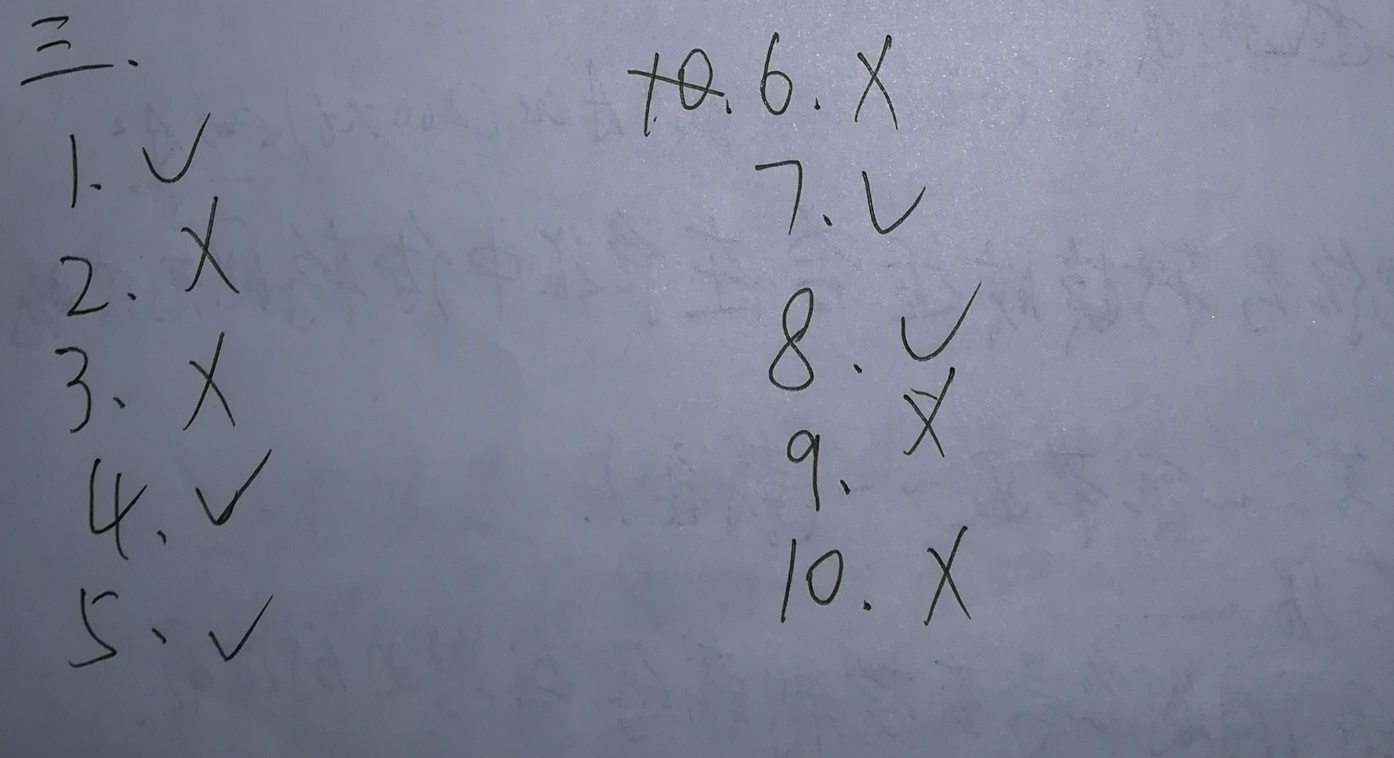 三.
1. ✓
2. ×
3. ×
4. ✓
5. ✓
6. ×
7. ✓
8. ✓
9. ×
10. ×